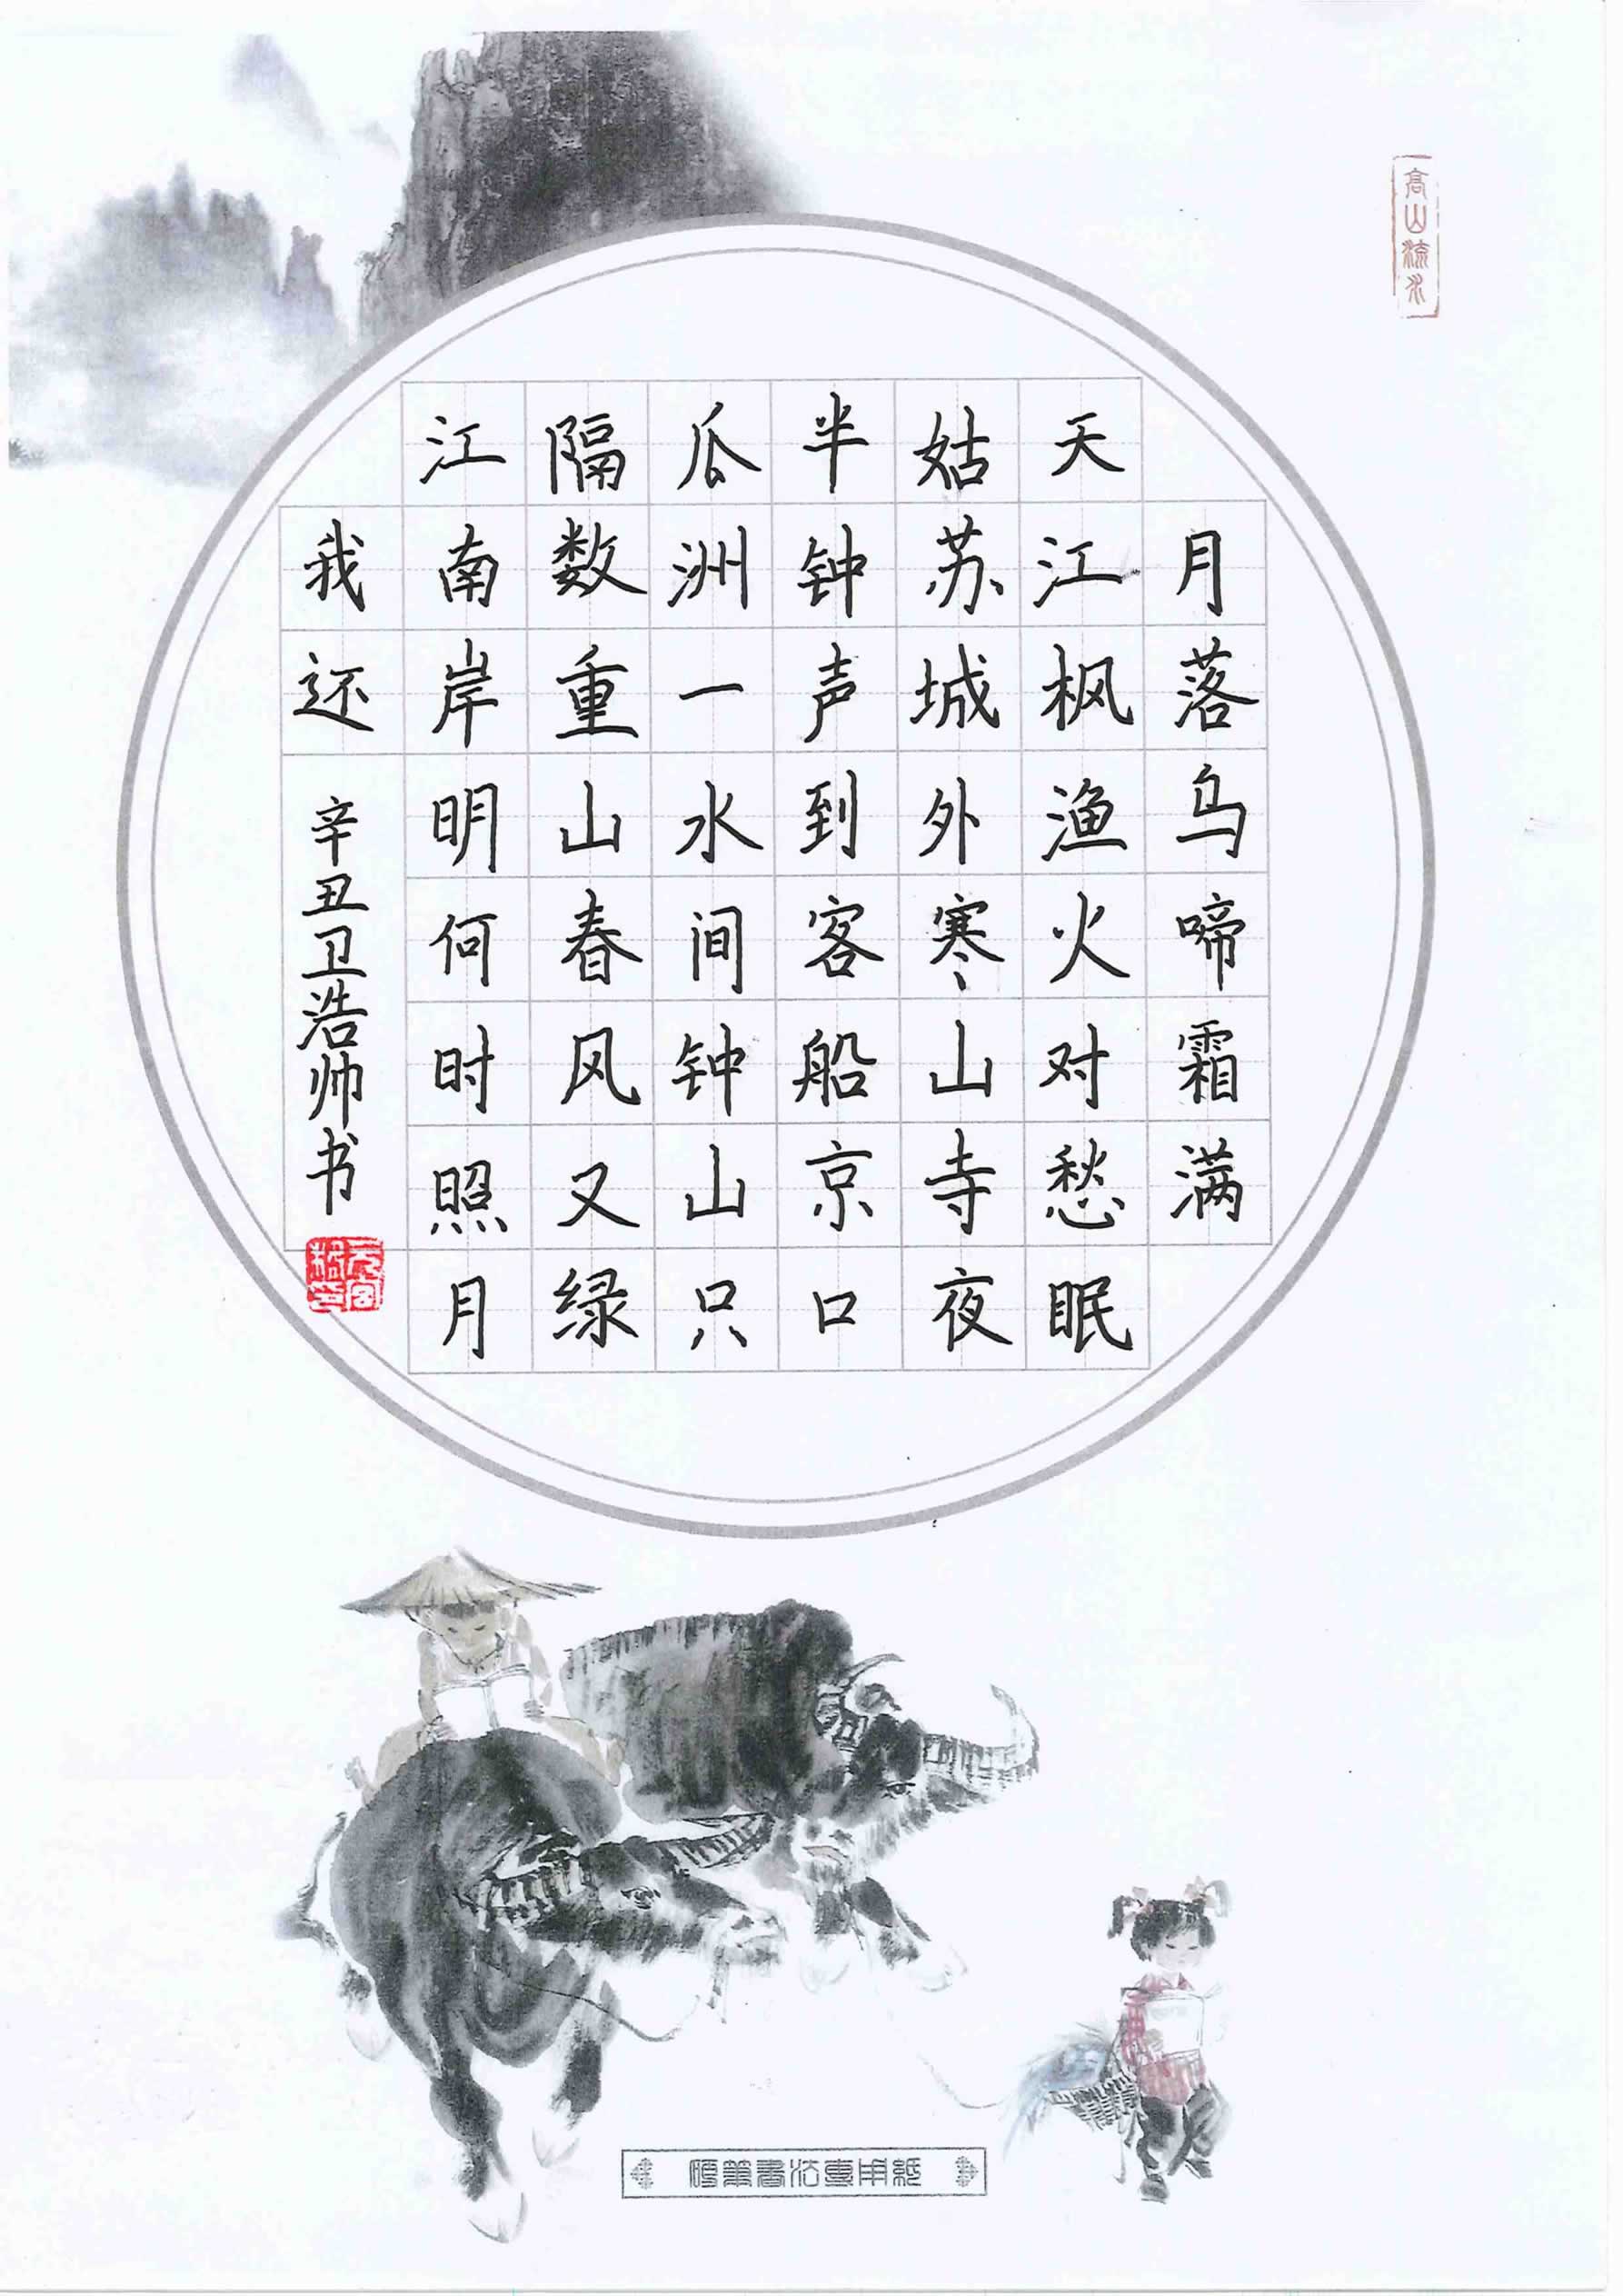 高山流水
月落乌啼霜满
天江枫渔火对愁眠
姑苏城外寒山寺夜
半钟声到客船京口
瓜洲一水间钟山只
隔数重山春风又绿
江南岸明何时照月
我还
辛丑卫浩帅书
硬笔书法专用纸